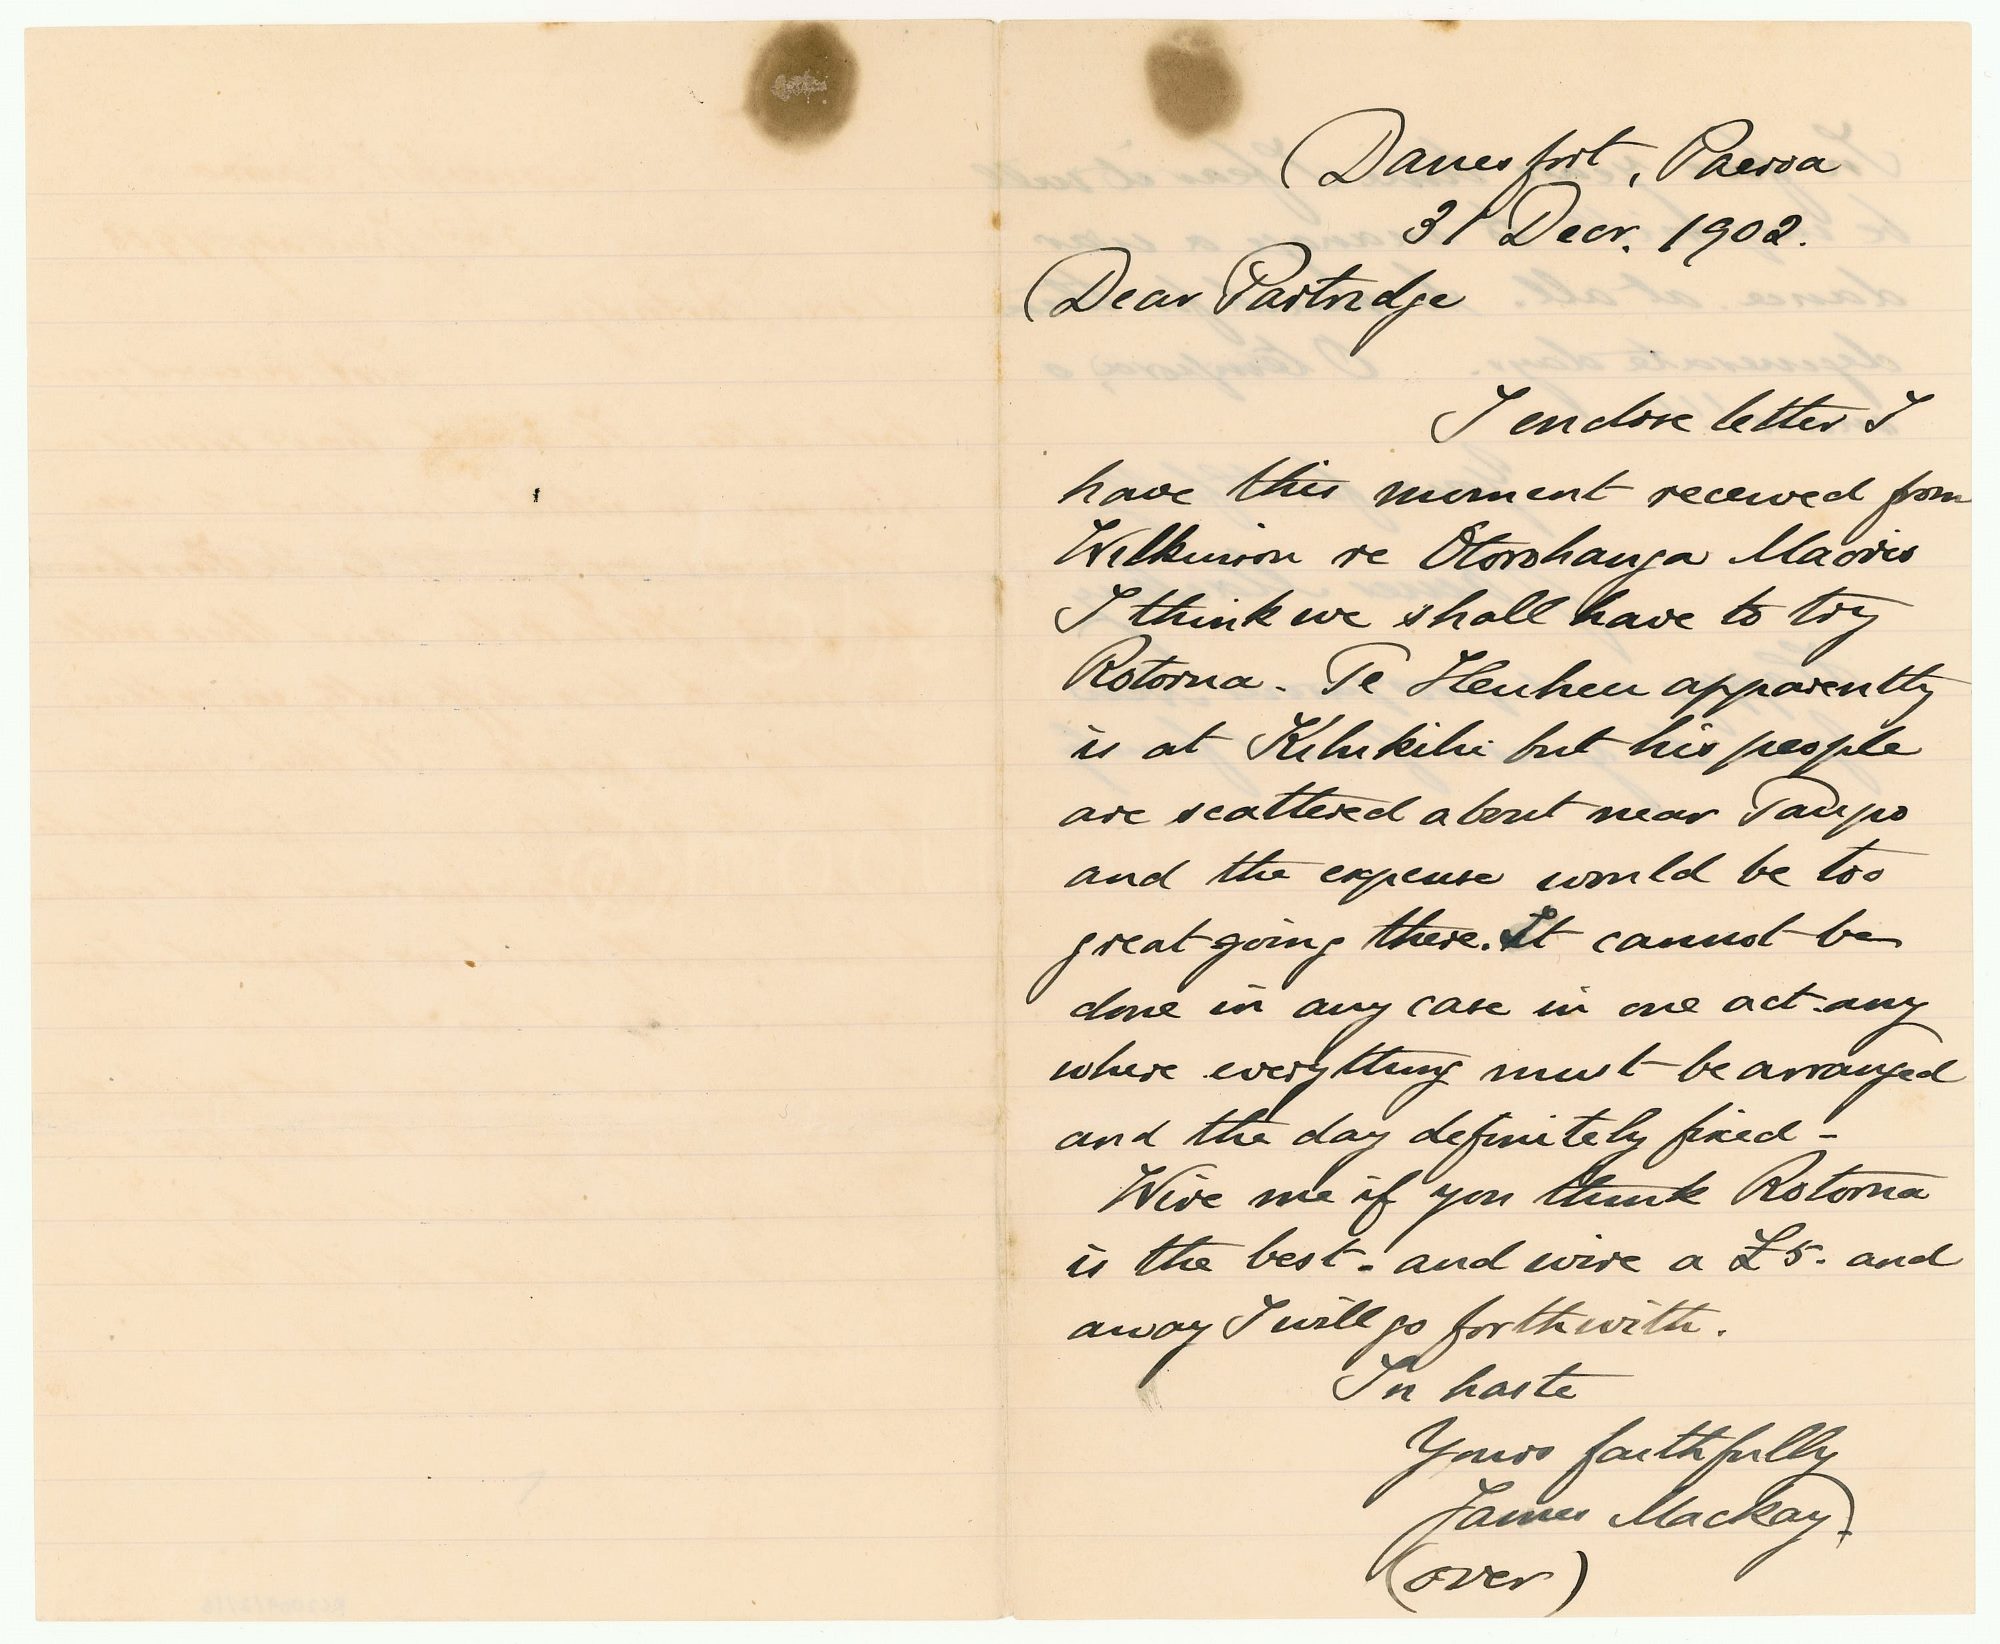 Danesfort, Paeroa
31 Decr. 1902.
Dear Partridge
I enclose letter I
have this moment received from
Wilkinson re Otorohanga Maoris
I think we shall have to try
Rotorua. Te Heuheu apparently
is at Kihikihi but his people
are scattered about near Taupo
and the expense would be too
great going there. It cannot be
done in any case in one act any
where everything must be arranged
and the day definitely fixed -
Wire me if you think Rotorua
is the best - and wire a £5. and
away I will go forthwith.
In haste
Yours faithfully
James Mackay.
(over)